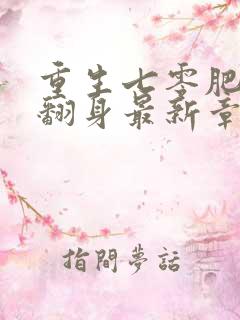 重生七零肥
翻身最新章
指間夢話